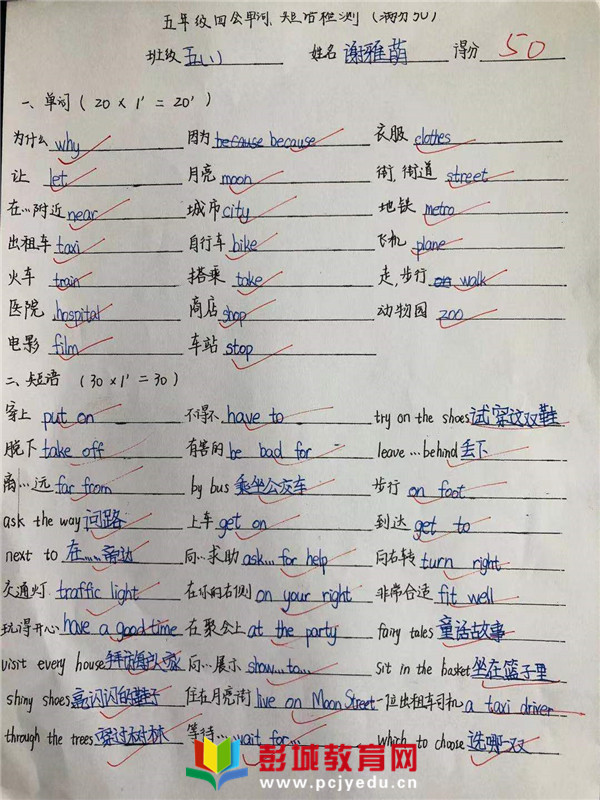 五年级四会单词、短语检测（满分50）
班级 五(1) 姓名 谢雅萌 得分 50
一、单词（20 × 1' = 20'）
为什么 why 因为 because because 衣服 clothes
让 let 月亮 moon 街，街道 street
在…附近 near 城市 city 地铁 metro
出租车 taxi 自行车 bike 飞机 plane
火车 train 搭乘 take 走，步行 on walk
医院 hospital 商店 shop 动物园 zoo
电影 film 车站 stop
二、短语（30 × 1' = 30）
穿上 put on 不得不 have to try on the shoes 试穿这双鞋
脱下 take off 有害的 be bad for leave…behind 丢下
离…远 far from by bus 乘坐公交车 步行 on foot
ask the way 问路 上车 get on 到达 get to
next to 在……旁边 向…求助 ask…for help 向右转 turn right
交通灯 traffic light 在你的右侧 on your right 非常合适 fit well
玩得开心 have a good time 在聚会上 at the party fairy tales 童话故事
visit every house 拜访每户人家 向…展示 show…to… sit in the basket 坐在篮子里
shiny shoes 亮闪闪的鞋子 住在月亮街 live on Moon Street 一位出租车司机 a taxi driver
through the trees 穿过树林 等待… wait for… which to choose 选哪双
彭城教育网
www.pcjyedu.cn